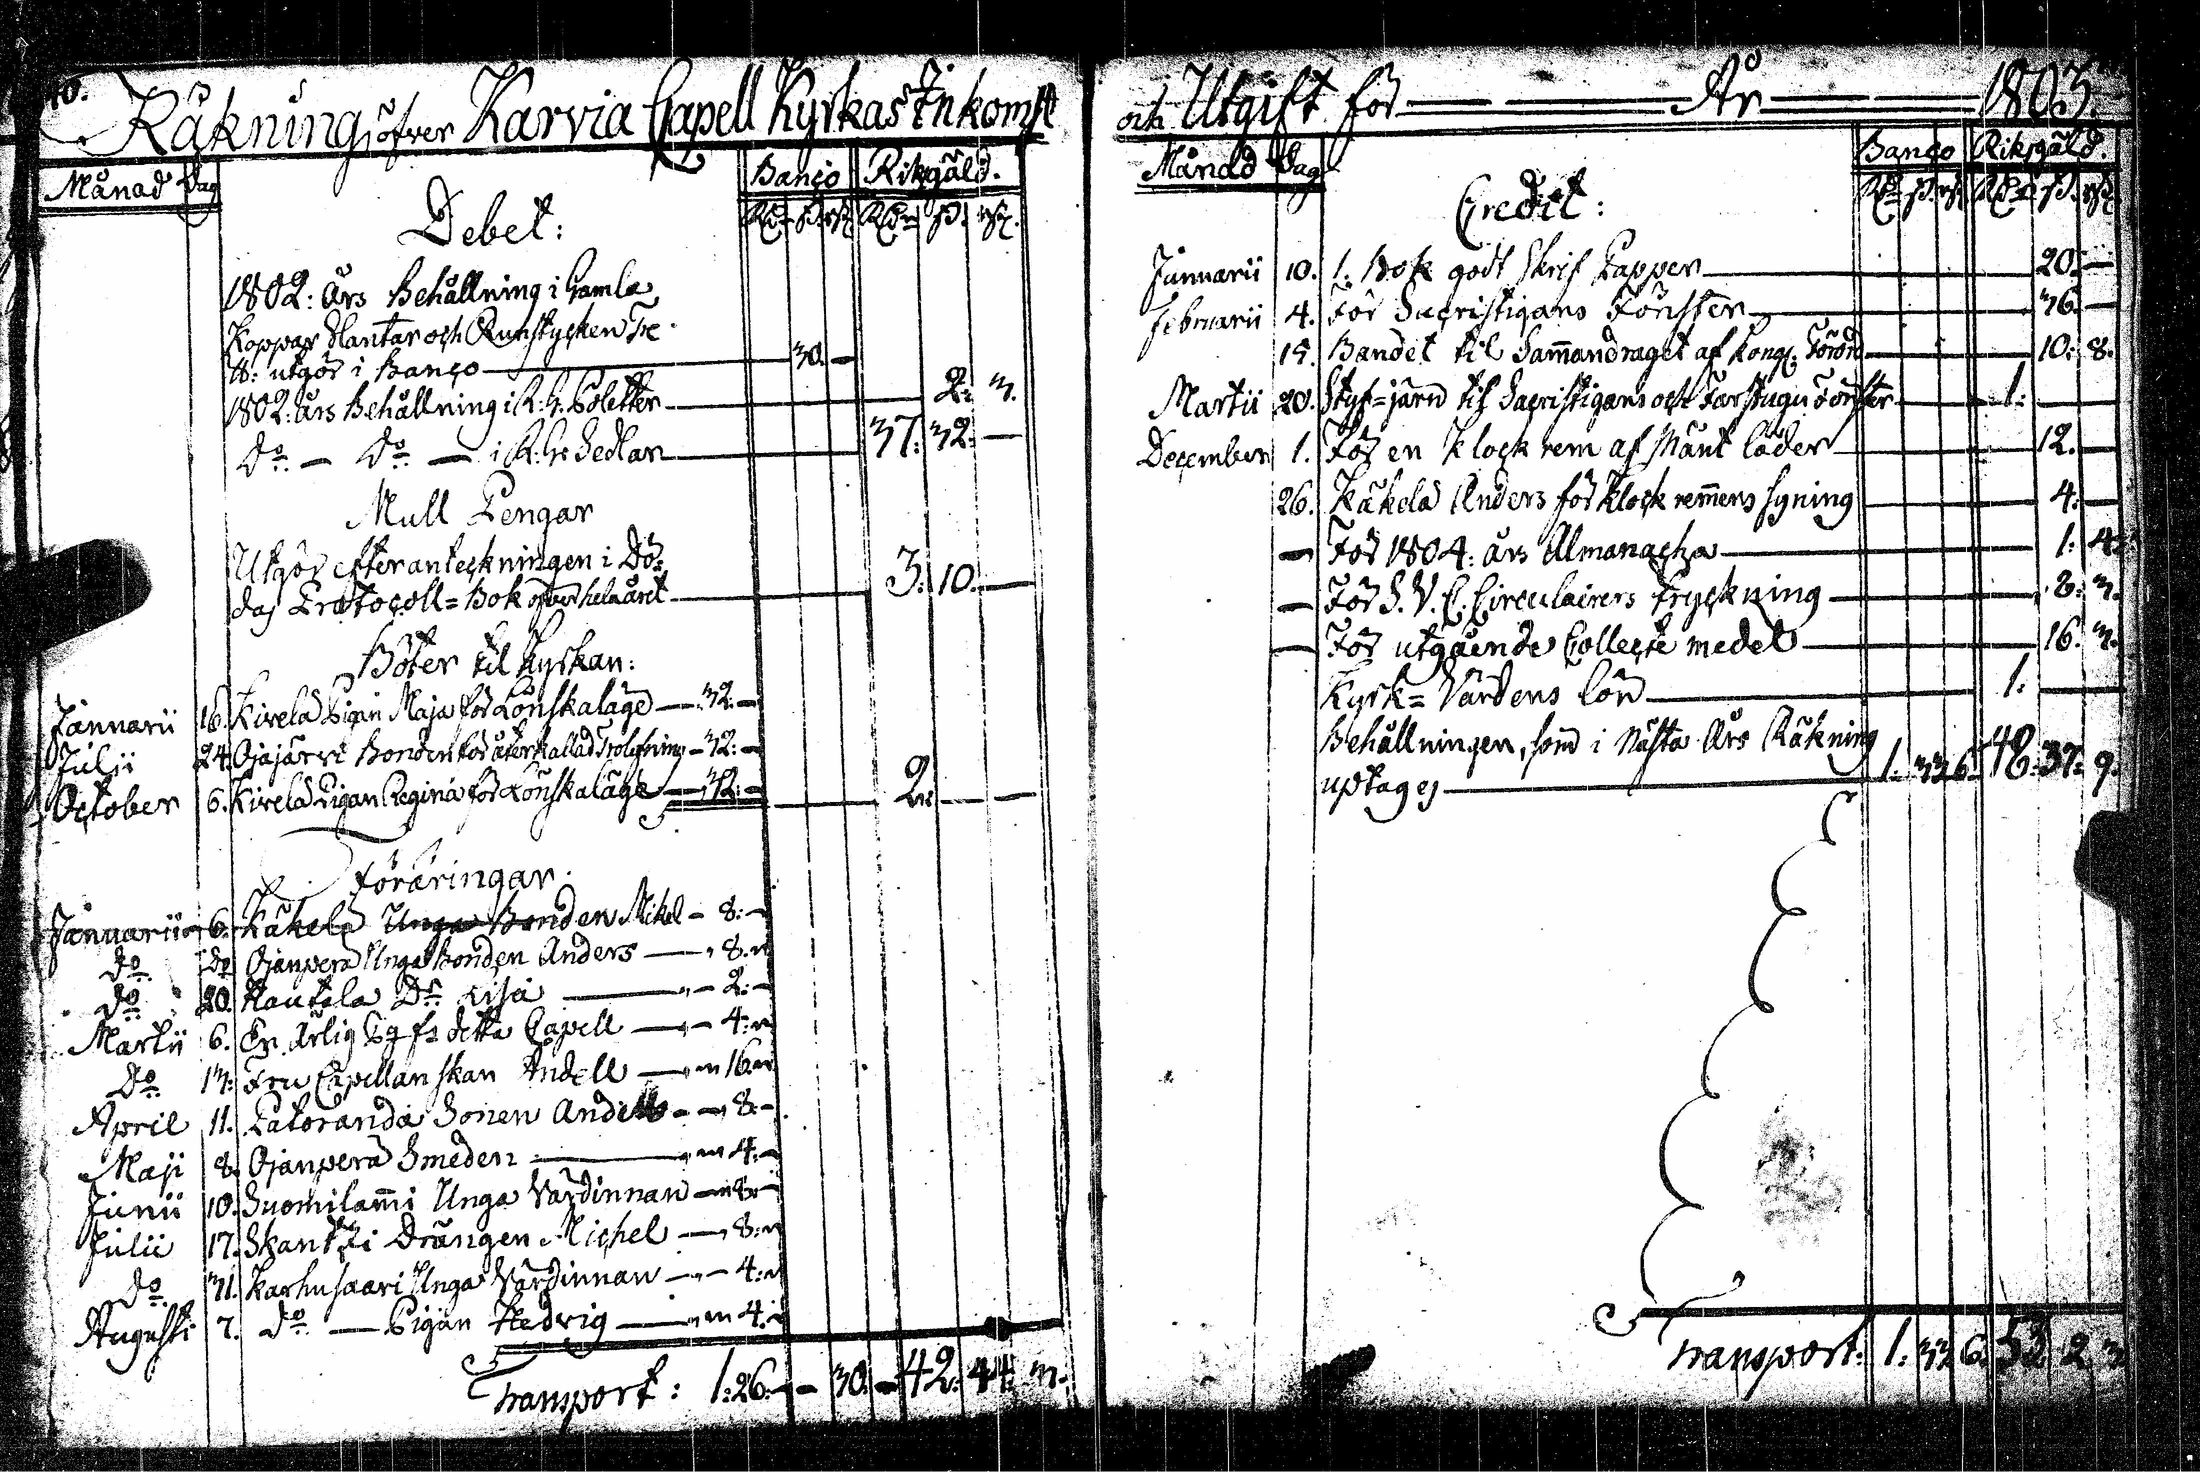 40.
Räkning öfver Karvia Capell Kyrkas Inkomst
Månad Dag Banco Riksgäld.
Debet: Rdr ß. rst. Rdr ß. rst.
1802: Års Behållning i Gamla
Koppar Slantar och Runstycken
utgör i Banco — 30. —
1802: års Behållning i R: G: Poletter — 2: 3.
do — do — i R: G: Sedlar — 37: 32: —
Mull Pengar
Utgör efter anteckningen i Dö-
das Protocoll=Bok öfver hela året — 3: 10. —
Böter til Kyrkan:
Januarii 16. Kivelä Pigan Maja för Lönskaläge — 32: —
Julii 24. Ojajärvi Bonden för återkallad Trolofning — 32: —
October 6. Kivelä Pigan Regina för Lönskaläge — 32: — 2: — —
Föräringar.
Januarii 6. Käkelä Unga Bonden Mikel — 8: —
do do Ojanperä Unga Bonden Anders — 8. —
do 20. Rautela Dr Lisa — 2: —
Martii 6. En Ärlig fr detta Capell — 4: —
do 13: Fru Capellanskan Indell — 16. —
April 11. Latoranda Sonen Anders — 8: —
Maji 8. Ojanperä Smeden — 4: —
Junii 10. Suomilam̄i Unga Värdinnan — 8: —
Julii 17. Skantzi Drängen Michel — 8: —
do 31. Karhusaari Unga Värdinnan — 4: —
Augusti 7. do — Pigan Hedvig — 4. —
Transport: 1: 26: — 30. — 42: 44: 3.
och Utgift för — År — 1803.
Månad Dag Banco Riksgäld.
Credit: Rdr ß. rst. Rdr ß. rst.
Januarii 10. 1. Bok godt Skrif Papper — 20: —
Februarii 4. För Sacristigans Fönster — 36. —
15. Bandet til Sam̄andraget af Kongl. Förord — 10: 8.
Martii 20. Styf=järn til Sacristigans och Farstugu Fönster — 1: —
December 1. För en Klock rem af Smänt läder — 12. —
26. Käkelä Anders för Klock rem̄ens syning — 4: —
— För 1804: års Almanacha — 1: 4.
— För S. V. C. Circulairers Tryckning — 8: 3.
— För utgående Collecte medel — 16. 3.
Kyrk=Värdens lön — 1: —
Behållningen, som i Nästa Års Räkning
uptages — 1: 33 6. 48: 37: 9.
Transport: 1: 33 6. 53. 2 3